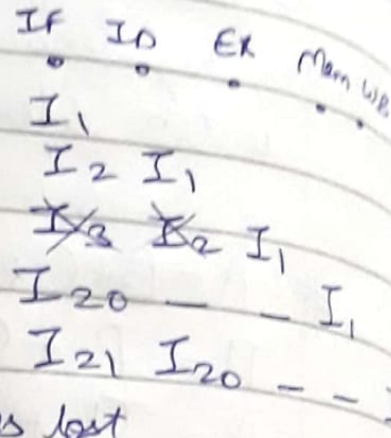 IF ID EX Mem WB
I1
I2 I1
I3 I2 I1
I20 — — I1
I21 I20 - -
lost